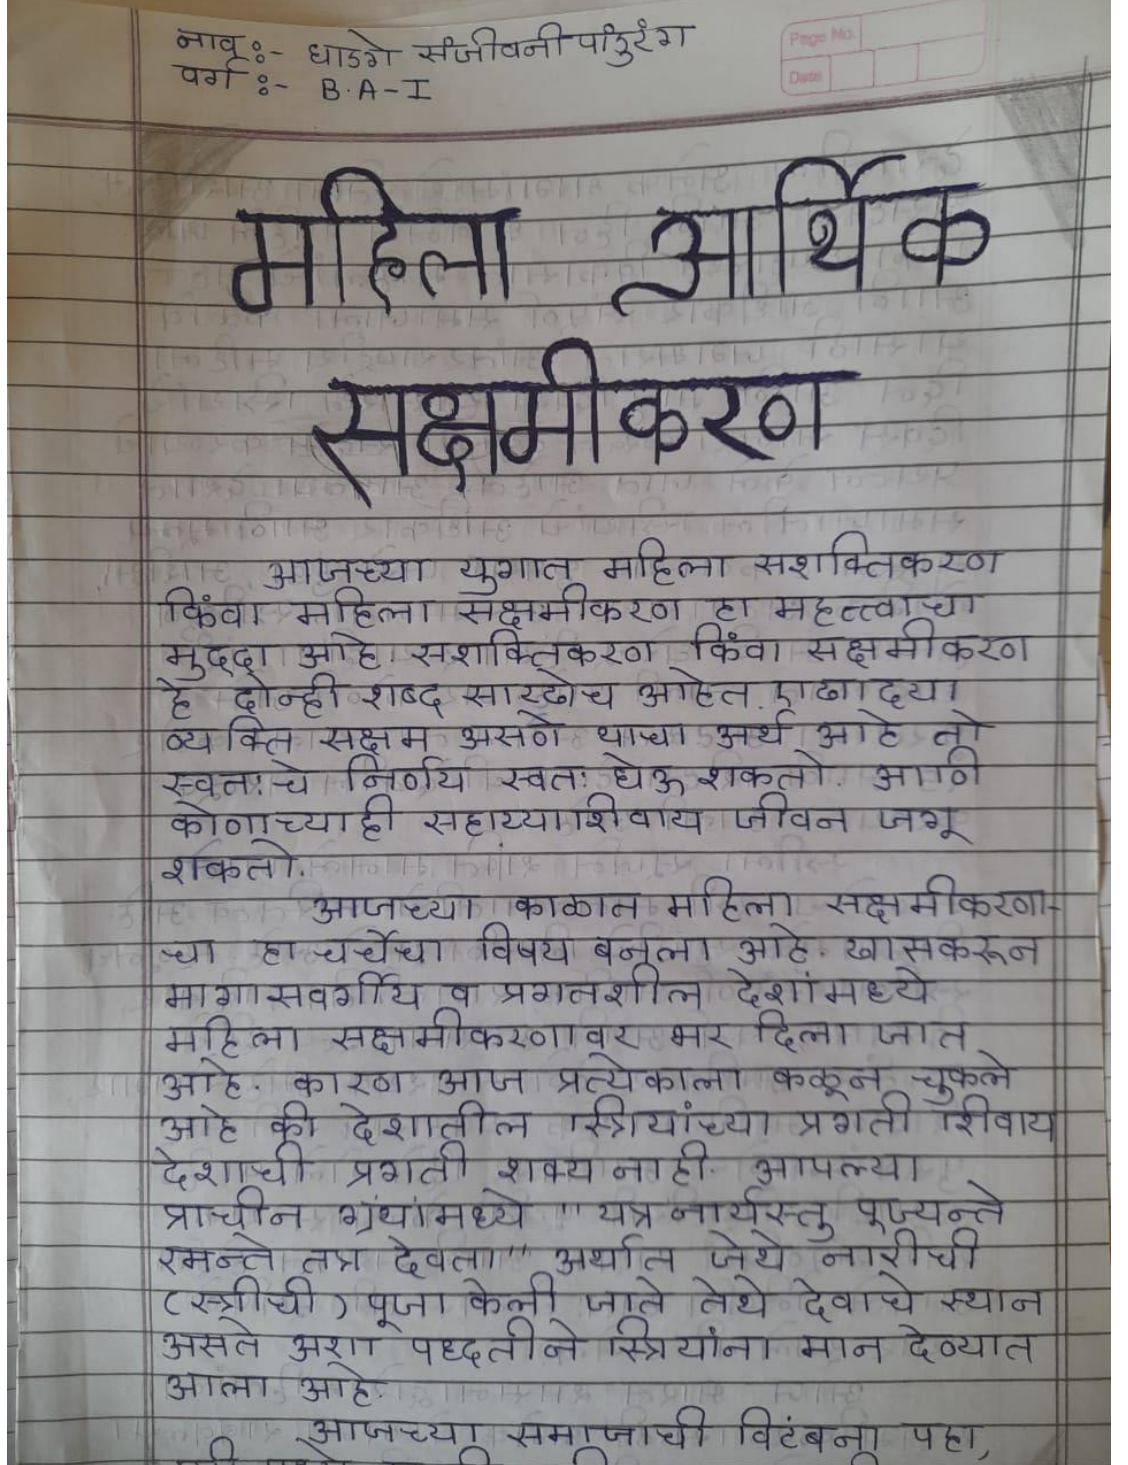 नाव :- घाडगे संजीवनी पांडुरंग
वर्ग :- B.A-I
Page No.
Date
महिला आर्थिक
सक्षमीकरण
आजच्या युगात महिला सशक्तिकरण
किंवा महिला सक्षमीकरण हा महत्त्वाचा
मुद्दा आहे. सशक्तिकरण किंवा सक्षमीकरण
हे दोन्ही शब्द सारखेच आहेत. एखाद्या
व्यक्ति सक्षम असणे याचा अर्थ आहे तो
स्वतःचे निर्णय स्वतः घेऊ शकतो. आणि
कोणाच्याही सहाय्याशिवाय जीवन जगू
शकतो.
आजच्या काळात महिला सक्षमीकरणा-
चा हा चर्चेचा विषय बनला आहे. खासकरून
मागासवर्गीय व प्रगतशील देशांमध्ये
महिला सक्षमीकरणावर भर दिला जात
आहे. कारण आज प्रत्येकाला कळून चुकले
आहे की देशातील स्त्रियांच्या प्रगती शिवाय
देशाची प्रगती शक्य नाही. आपल्या
प्राचीन ग्रंथांमध्ये "यत्र नार्यस्तु पूज्यन्ते
रमन्ते तत्र देवता" अर्थात जेथे नारीची
(स्त्रीची) पूजा केली जाते तेथे देवाचे स्थान
असते अशा पध्दतीने स्त्रियांना मान देण्यात
आला आहे.
आजच्या समाजाची विटंबना पहा,